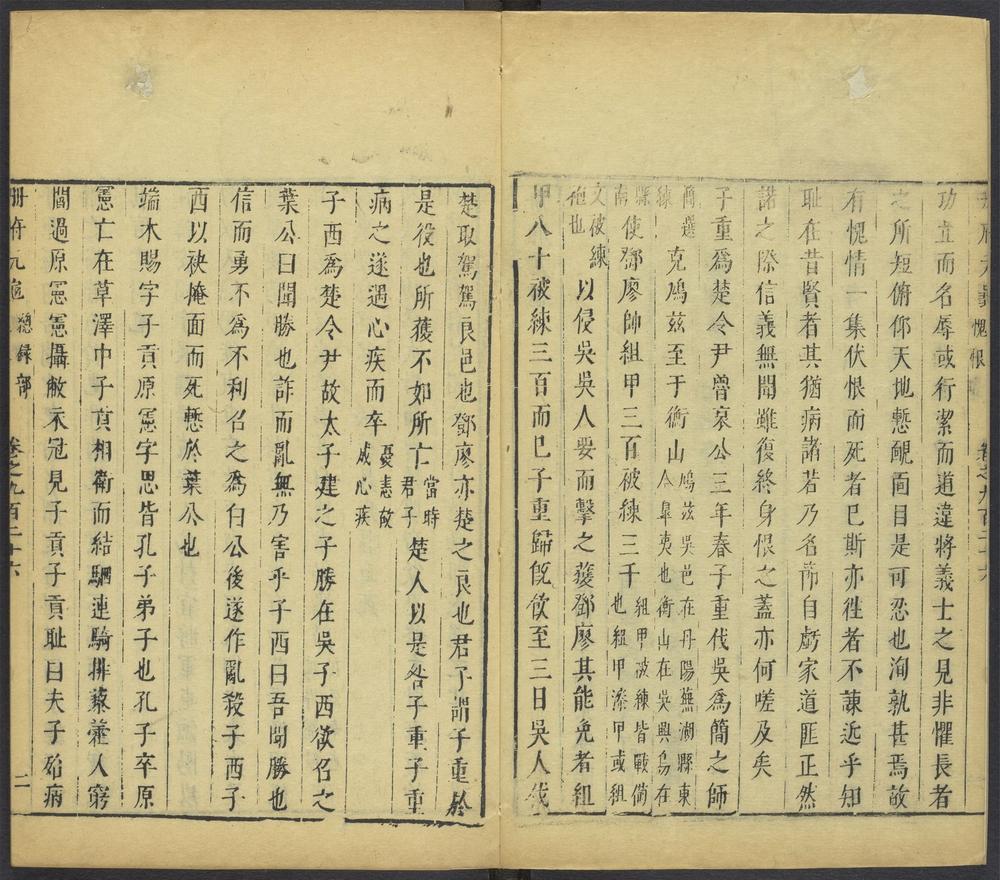 卷之九百二十六
功立而名辱或行潔而道違將義士之見非懼長者
之所短俯仰天地慙靦面目是可忍也洵孰甚焉故
有愧情一集伏恨而死者巳斯亦徃者不諌近乎知
耻在昔賢者其猶病諸若乃名節自虧家道匪正然
諾之際信義無聞雖復終身恨之蓋亦何嗟及矣
子重爲楚令尹魯襄公三年春子重伐吳爲簡之師
簡選練克鳩兹至于衡山鳩兹吳邑在丹陽蕪湖縣東今臯夷也衡山在吳興烏在
縣南使鄧廖帥組甲三百被練三千組甲被練皆戰備也組甲漆甲或組
文被練袍也以侵吳吳人要而擊之獲鄧廖其能免者組
甲八十被練三百而巳子重歸旣飲至三日吳人伐
楚取駕駕良邑也鄧廖亦楚之良也君子謂子重於
是役也所獲不如所亡當時君子楚人以是咎子重子重
病之遂遇心疾而卒憂恚故成心疾
子西爲楚令尹故太子建之子勝在吳子西欲召之
葉公曰聞勝也詐而亂無乃害乎子西曰吾聞勝也
信而勇不爲不利召之爲白公後遂作亂殺子西子
西以袂掩面而死慙於葉公也
端木賜字子貢原憲字思皆孔子弟子也孔子卒原
憲亡在草澤中子貢相衛而結駟連騎排藜藿入窮
閻過原憲憲攝敝衣冠見子貢子貢耻曰夫子殆病
册府元龜 總録部 卷之九百二十六 二